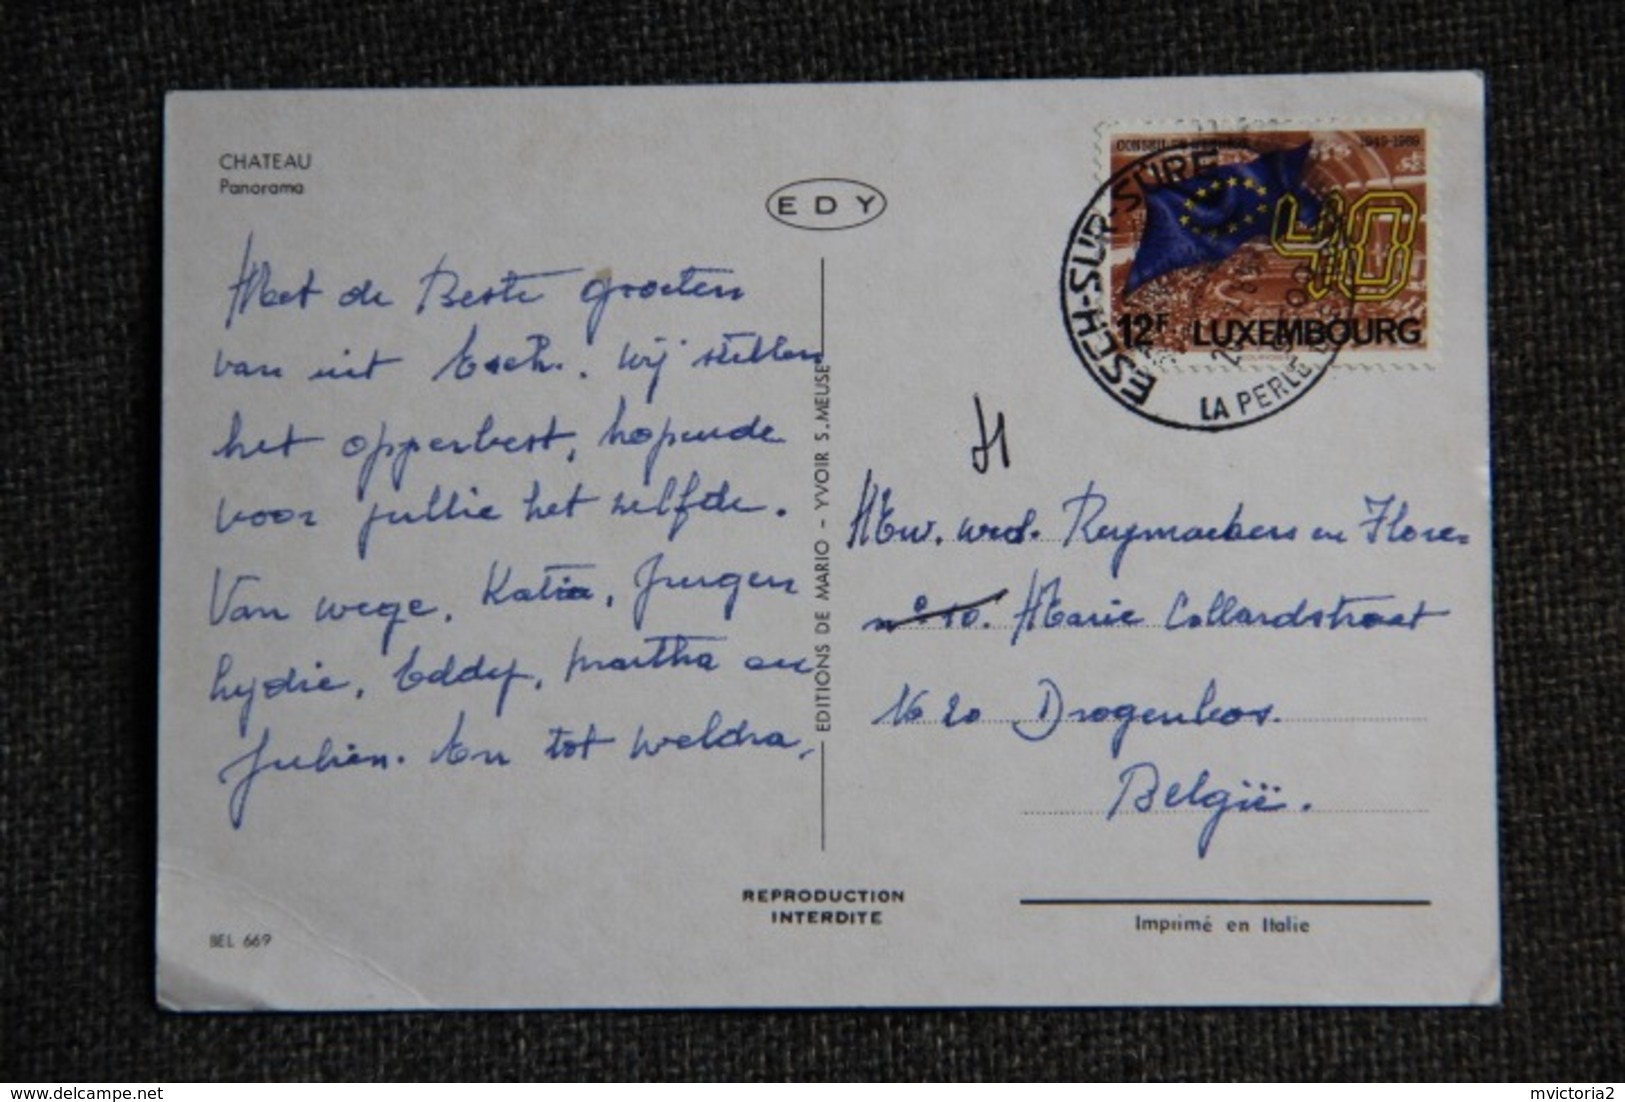 CHATEAU
Panorama
EDY
Met de Beste groeten
van uit Esch. wij stellen
het opperbest, hopende
voor jullie het zelfde.
Van wege, Katia, Jurgen
Lydie, Eddy, Martha en
Julien. En tot weldra,
BEL 669
EDITIONS DE MARIO - YVOIR S. MEUSE
REPRODUCTION
INTERDITE
1949-1989
40
12F LUXEMBOURG
ESCH-SUR-SURE
LA PERLE
Mw. wed. Reymaekers en Flore
n° 10. Marie Collardstraat
1620 Drogenbos.
België.
Imprimé en Italie
mvictoria2